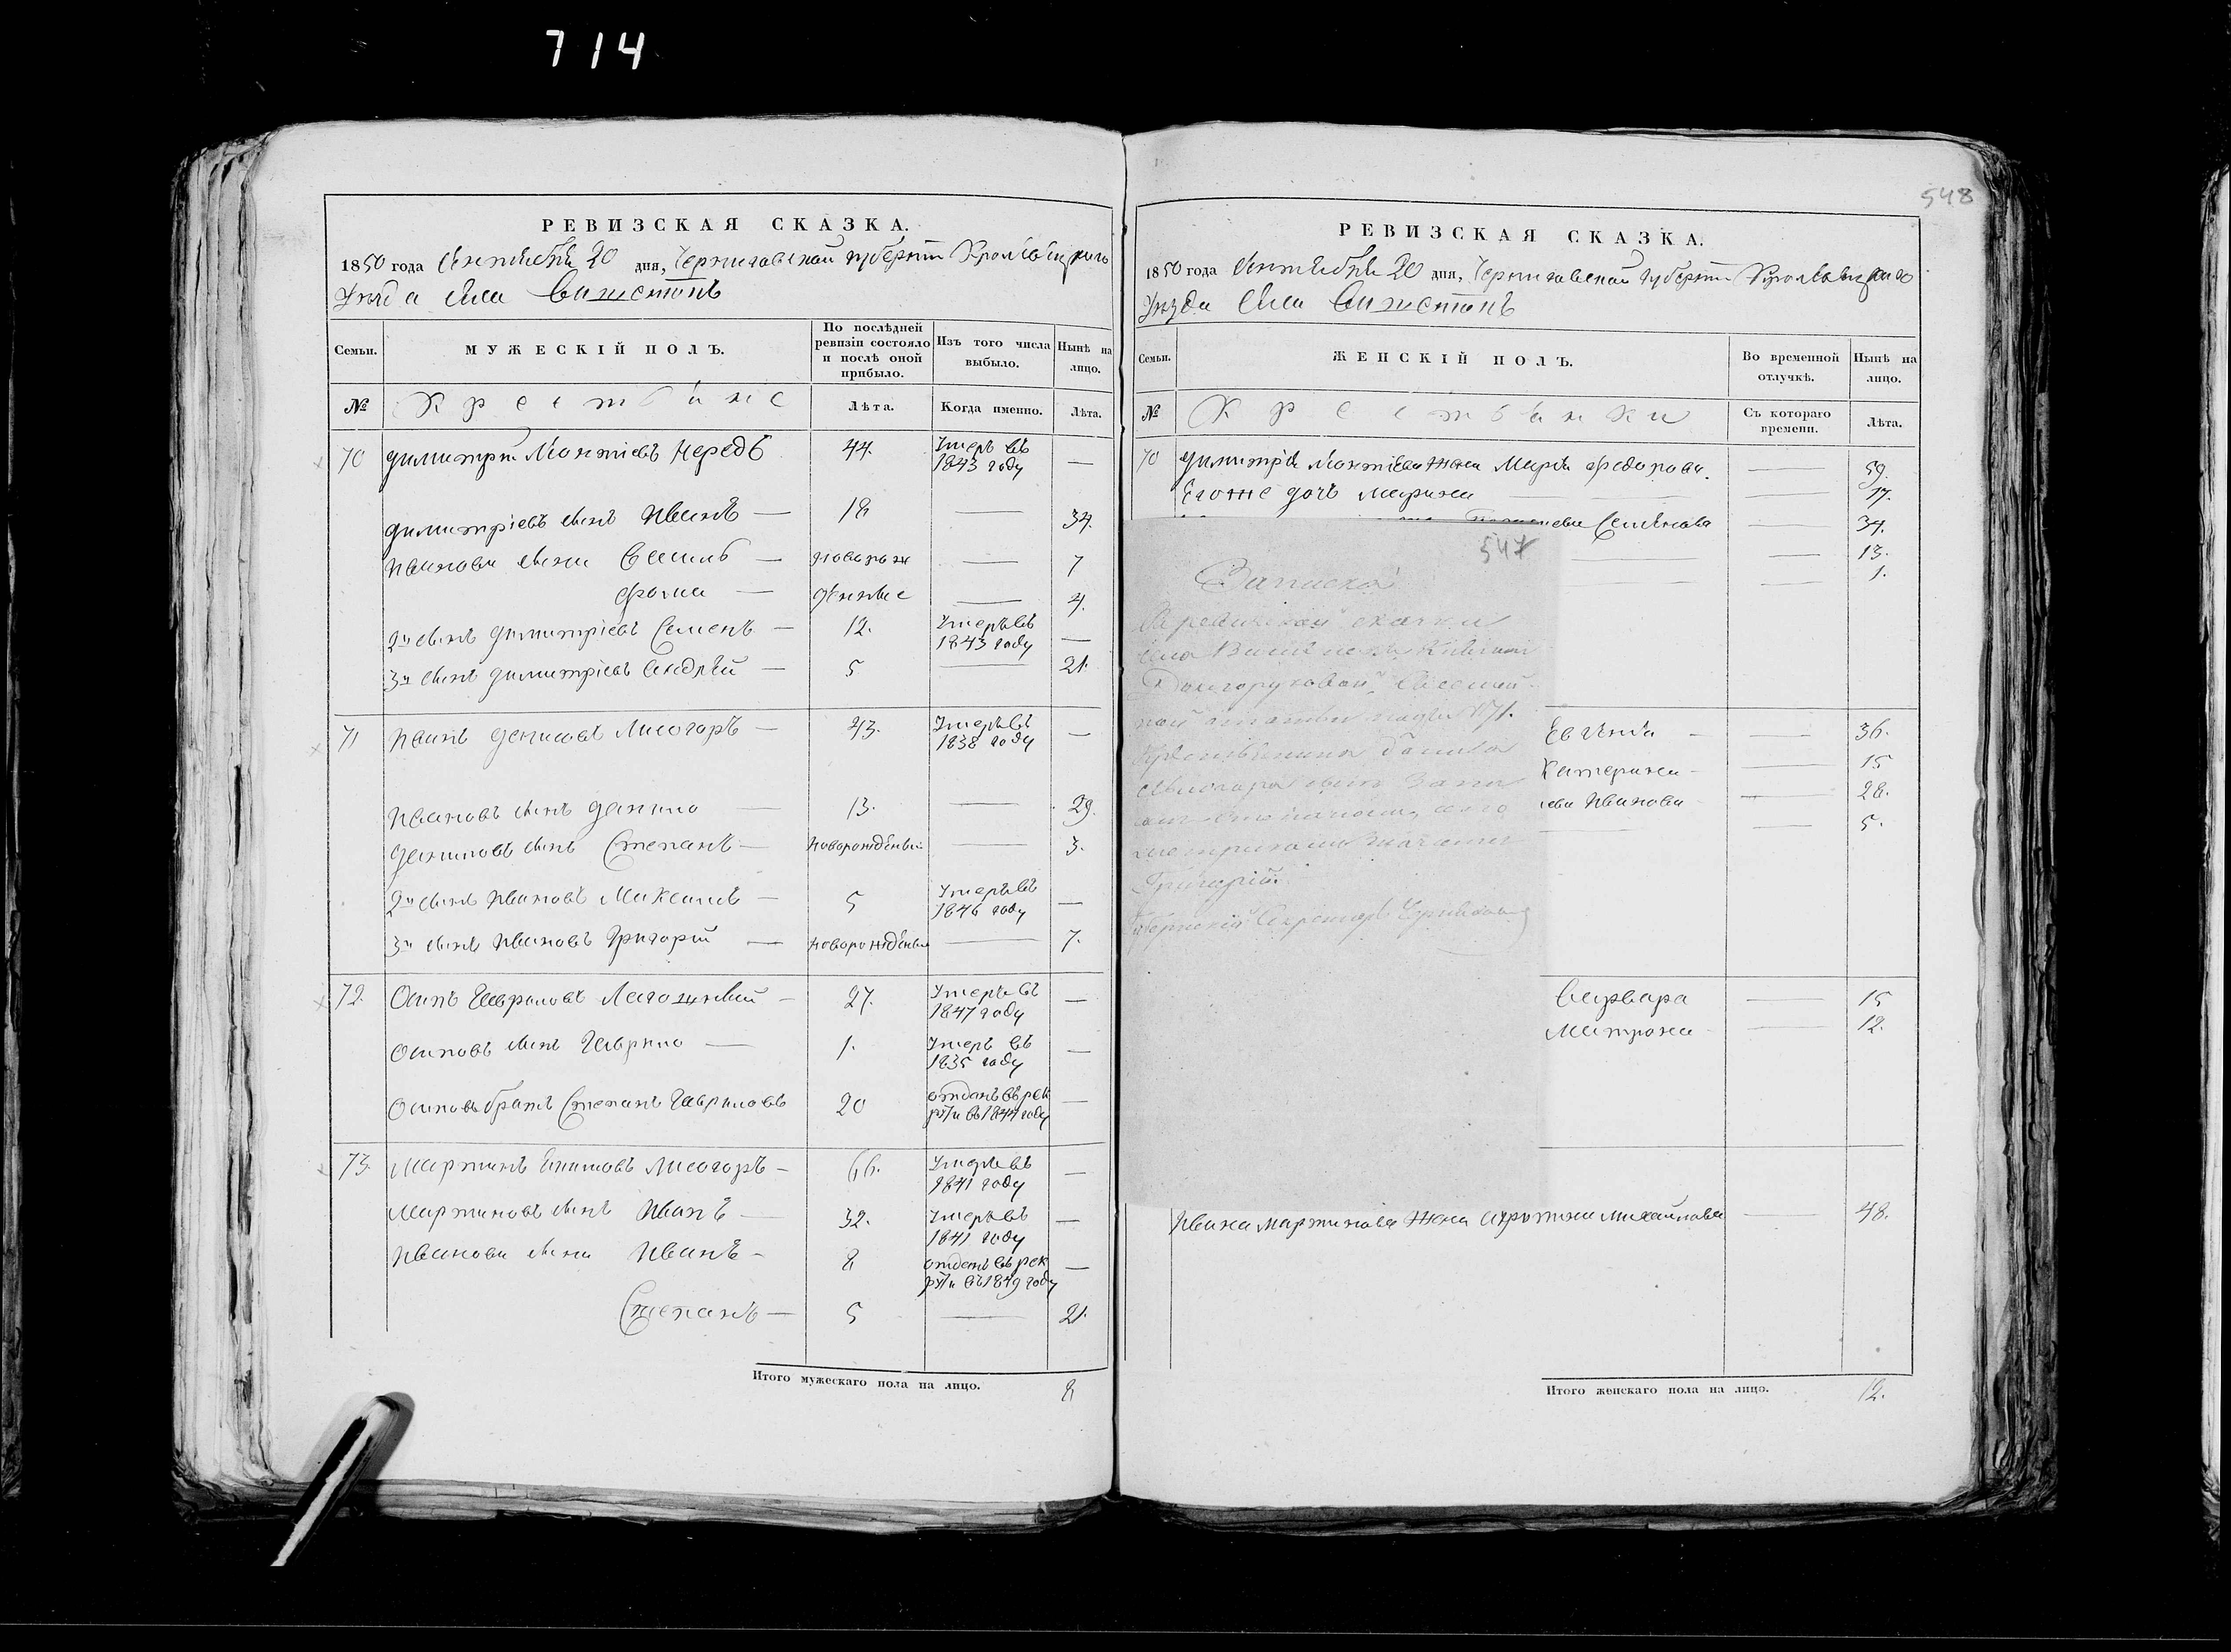 714
РЕВИЗСКАЯ СКАЗКА.
1850 года Сентября 20 дня, Черниговской губернии Кролевецкаго
Уезда села
МУЖЕСКІЙ ПОЛЪ.
Семьи.
По послѣдней ревизіи состояло и послѣ оной прибыло.
Изъ того числа выбыло.
Нынѣ на лицо.
№ Крестьяне Лѣта. Когда именно. Лѣта.
70 Димитрій Леонтіевъ 44. Умеръ въ 1843 году —
Димитріевъ сынъ Иванъ — 18 — 34.
Ивановы сыны — новорож — 7
Фома — денные — 4.
2й сынъ Димитріевъ Семенъ — 12. Умеръ въ 1843 году —
3й сынъ Димитріевъ Андрей — 5 — 21.
71 Иванъ Денисовъ Лисогоръ — 43. Умеръ въ 1838 году —
Ивановъ сынъ Данило — 13. — 29.
Даниловъ сынъ Степанъ — новорожденый — 3.
2й сынъ Ивановъ Максимъ — 5 Умеръ въ 1846 году —
3й сынъ Ивановъ Григорій — новорожденый — 7.
72. Осипъ Гавриловъ — 27. Умеръ въ 1847 году —
Осиповъ сынъ Гаврило — 1. Умеръ въ 1835 году —
Осиповъ братъ Степанъ Гавриловъ 20 отданъ въ рекруты въ 1844 году —
73. Мартинъ Лисогоръ — 66. Умеръ въ 1841 году —
Мартиновъ сынъ Иванъ — 32. Умеръ въ 1841 году —
Ивановы сыны Иванъ — 8 отданъ въ рекруты въ 1849 году —
Степанъ — 5 — 21.
Итого мужескаго пола на лицо. 8
548
РЕВИЗСКАЯ СКАЗКА.
1850 года Сентября 20 дня, Черниговской губернии Кролевецкаго
Уезда села
Семьи.
ЖЕНСКІЙ ПОЛЪ.
Во временной отлучкѣ.
Нынѣ на лицо.
№ Крестьянки Съ котораго времени. Лѣта.
70 Димитрія Леонтіева жена Марія Федорова. — 59.
Его же дочь Марина — 17.
Семенова — 34.
— 13.
— 1.
547
Записка
Крестьянина Данила
Григорій.
Губернскій Секретарь
Евгенія — 36.
Катерина — 15
Иванова — 28.
— 5.
Варвара — 15
Матрона — 12.
Ивана Мартинова жена Михайлова — 48.
Итого женскаго пола на лицо. 12.